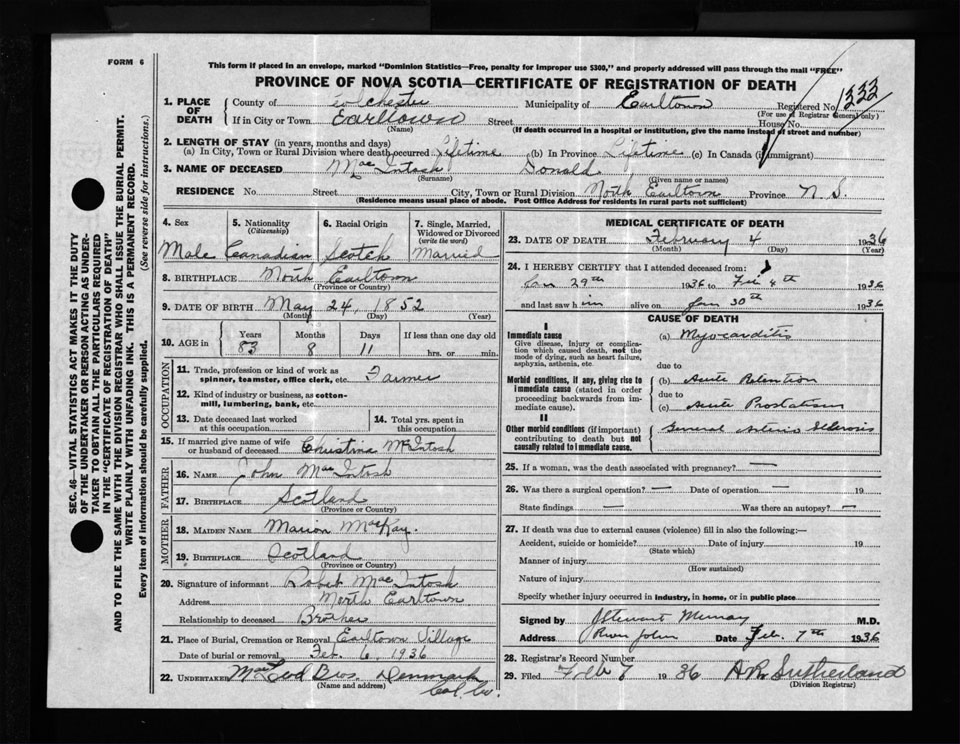 FORM 6
This form if placed in an envelope, marked "Dominion Statistics—Free, penalty for improper use $300," and properly addressed will pass through the mail "FREE"
PROVINCE OF NOVA SCOTIA—CERTIFICATE OF REGISTRATION OF DEATH
1. PLACE OF DEATH
County of Colchester Municipality of Earltown Registered No. 1333
(For use of Registrar General only)
If in City or Town Earltown Street House No.
(Name) (If death occurred in a hospital or institution, give the name instead of street and number)
2. LENGTH OF STAY (in years, months and days)
(a) In City, Town or Rural Division where death occurred Lifetime (b) In Province Lifetime (c) In Canada (if immigrant)
3. NAME OF DECEASED MacIntosh Donald
(Surname) (Given name or names)
RESIDENCE No. Street City, Town or Rural Division North Earltown Province N.S.
(Residence means usual place of abode. Post Office Address for residents in rural parts not sufficient)
4. Sex 5. Nationality 6. Racial Origin 7. Single, Married,
(Citizenship) Widowed or Divorced
(write the word)
Male Canadian Scotch Married
8. BIRTHPLACE North Earltown
(Province or Country)
9. DATE OF BIRTH May 24, 1852
(Month) (Day) (Year)
10. AGE in Years Months Days If less than one day old
83 8 11 hrs. or min.
OCCUPATION
11. Trade, profession or kind of work as
spinner, teamster, office clerk, etc. Farmer
12. Kind of industry or business, as cotton-
mill, lumbering, bank, etc.
13. Date deceased last worked 14. Total yrs. spent in
at this occupation this occupation
15. If married give name of wife
or husband of deceased Christina McIntosh
FATHER
16. NAME John MacIntosh
17. BIRTHPLACE Scotland
(Province or Country)
MOTHER
18. MAIDEN NAME Marion MacKay
19. BIRTHPLACE Scotland
(Province or Country)
20. Signature of informant Robert MacIntosh
Address North Earltown
Relationship to deceased Brother
21. Place of Burial, Cremation or Removal Earltown Village
Date of burial or removal Feb. 6, 1936
22. UNDERTAKER MacLeod Bros. Denmark
(Name and address) Col. Co.
MEDICAL CERTIFICATE OF DEATH
23. DATE OF DEATH February 4 1936
(Month) (Day) (Year)
24. I HEREBY CERTIFY that I attended deceased from:
Jan 29th 1936 to Feb 4th 1936
and last saw him alive on Jan 30th 1936
CAUSE OF DEATH
I
Immediate cause
Give disease, injury or complica-
tion which caused death, not the
mode of dying, such as heart failure,
asphyxia, asthenia, etc.
(a) Myocarditis
due to
Morbid conditions, if any, giving rise to
immediate cause (stated in order
proceeding backwards from im-
mediate cause).
(b) Acute Retention
due to
(c) Acute
II
Other morbid conditions (if important)
contributing to death but not
causally related to immediate cause.
General Arterio Sclerosis
25. If a woman, was the death associated with pregnancy? —
26. Was there a surgical operation? — Date of operation — 19
State findings — Was there an autopsy? —
27. If death was due to external causes (violence) fill in also the following:—
Accident, suicide or homicide? Date of injury 19
(State which)
Manner of injury
(How sustained)
Nature of injury
Specify whether injury occurred in industry, in home, or in public place
Signed by J Stewart Murray M.D.
Address River John Date Feb. 7th 1936
28. Registrar's Record Number
29. Filed Feb 7 1936 A R Sutherland
(Division Registrar)
SEC. 46—VITAL STATISTICS ACT, MAKES IT THE DUTY
OF THE UNDERTAKER OR PERSON ACTING AS UNDER-
TAKER TO OBTAIN ALL THE PARTICULARS REQUIRED
IN THE "CERTIFICATE OF REGISTRATION OF DEATH"
AND TO FILE THE SAME WITH THE DIVISION REGISTRAR WHO SHALL ISSUE THE BURIAL PERMIT.
WRITE PLAINLY WITH UNFADING INK. THIS IS A PERMANENT RECORD.
Every item of information should be carefully supplied. (See reverse side for instructions.)